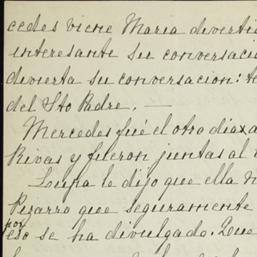 cedes viene Maria diverti
interesante su conversaci
divierta su conversacion: t
del Sto Padre. —
Mercedes fué el otro dia a
Rivas y fueron juntas al
Loupa le dijo que ella n
Pizarro que seguramente
por
eso se ha divulgado. Que